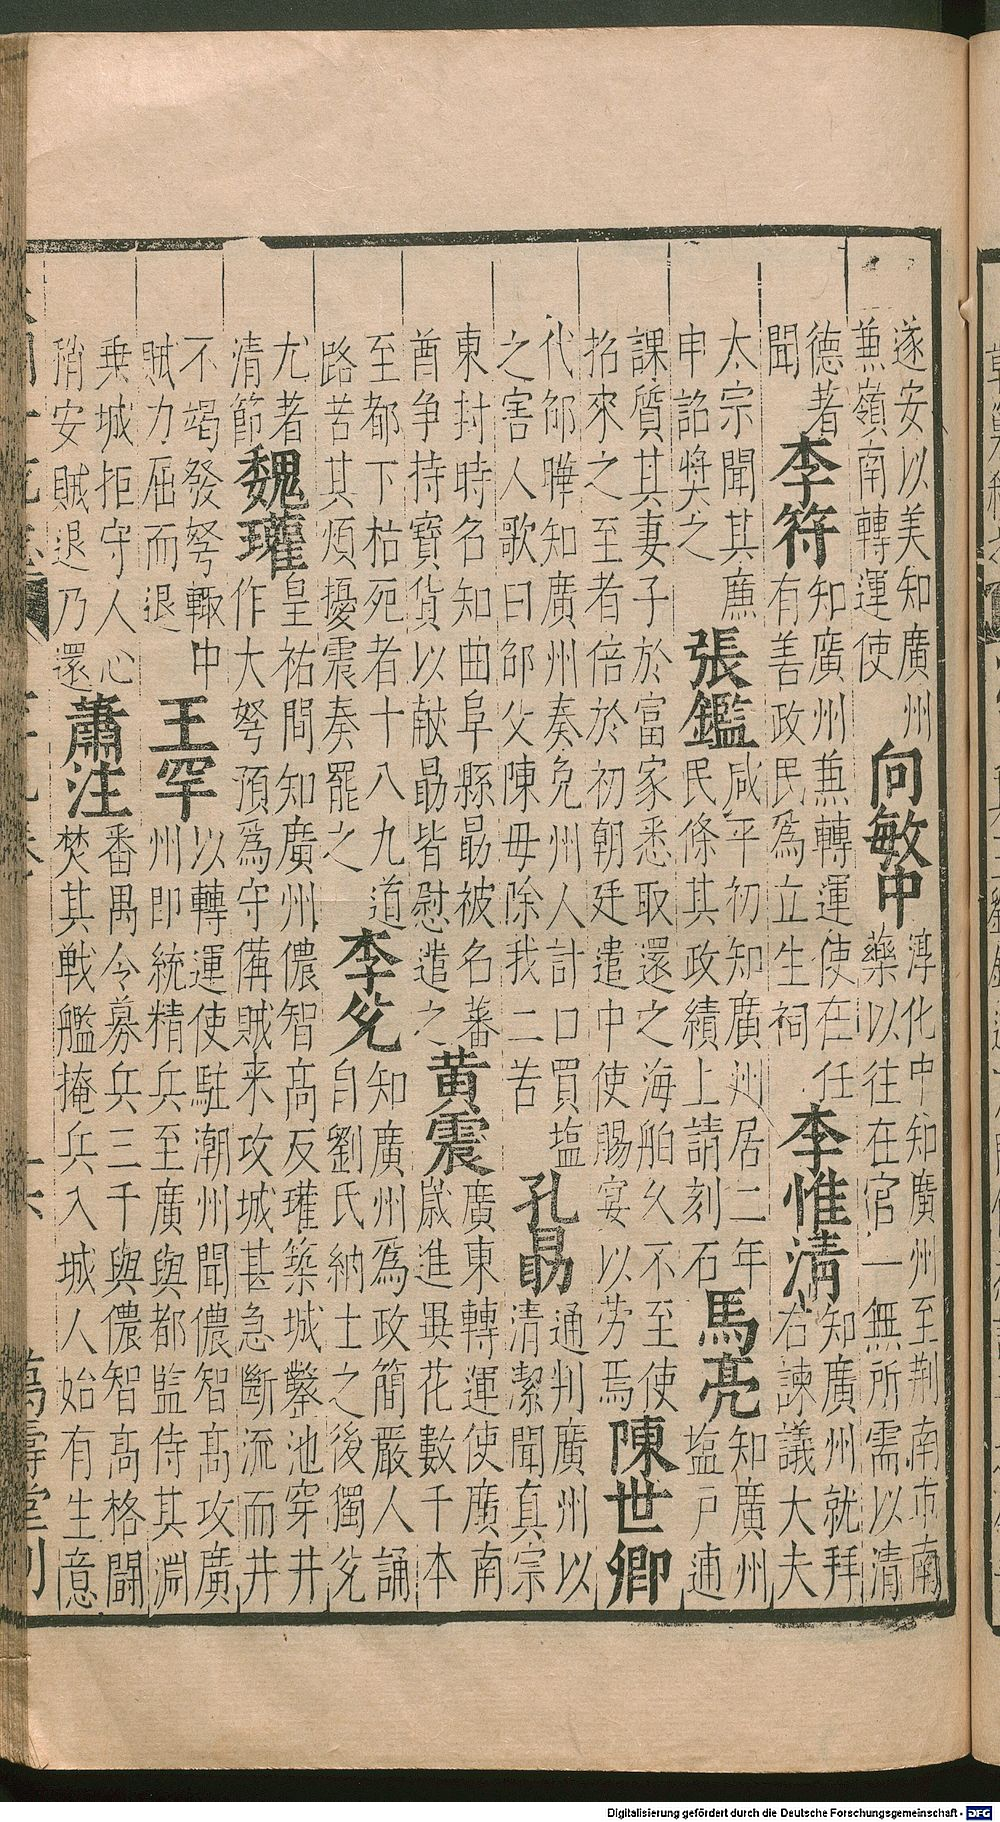 遂安以美知廣州
兼嶺南轉運使
向敏中
淳化中知廣州至荆南市南
藥以往在官一無所需以清
德著
聞
李符
知廣州兼轉運使在任
有善政民爲立生祠
李惟淸
知廣州就拜
右諫議大夫
太宗聞其廉
申詔奬之
張鑑
咸平初知廣州居二年
民條其政績上請刻石
馬亮
知廣州
塩戸逋
課質其妻子於富家悉取還之海舶久不至使
招來之至者倍於初朝廷遣中使賜宴以劳焉
陳世卿
代邵曄知廣州奏免州人計口買塩
之害人歌曰邵父陳母除我二苦
孔勗
通判廣州以
清潔聞真宗
東封時名知曲阜縣勗被名蕃
酋争持寳貨以献勗皆慰遣之
黄震
廣東轉運使廣南
歲進異花數千本
至都下枯死者十八九道
路苦其煩擾震奏罷之
李兊
知廣州爲政簡嚴人誦
自劉氏納土之後獨兊
尤者
清節
魏瓘
皇祐間知廣州儂智髙反瓘築城鑿池穿井
作大弩預爲守備賊来攻城甚急斷流而井
不竭發弩輙中
賊力屈而退
王罕
以轉運使駐潮州聞儂智髙攻廣
州即統精兵至廣與都監侍其淵
乗城拒守人心
稍安賊退乃還
蕭注
番禺令募兵三千與儂智髙格鬬
焚其戰艦掩兵入城人始有生意
萬壽堂刊
Digitalisierung gefördert durch die Deutsche Forschungsgemeinschaft - DFG